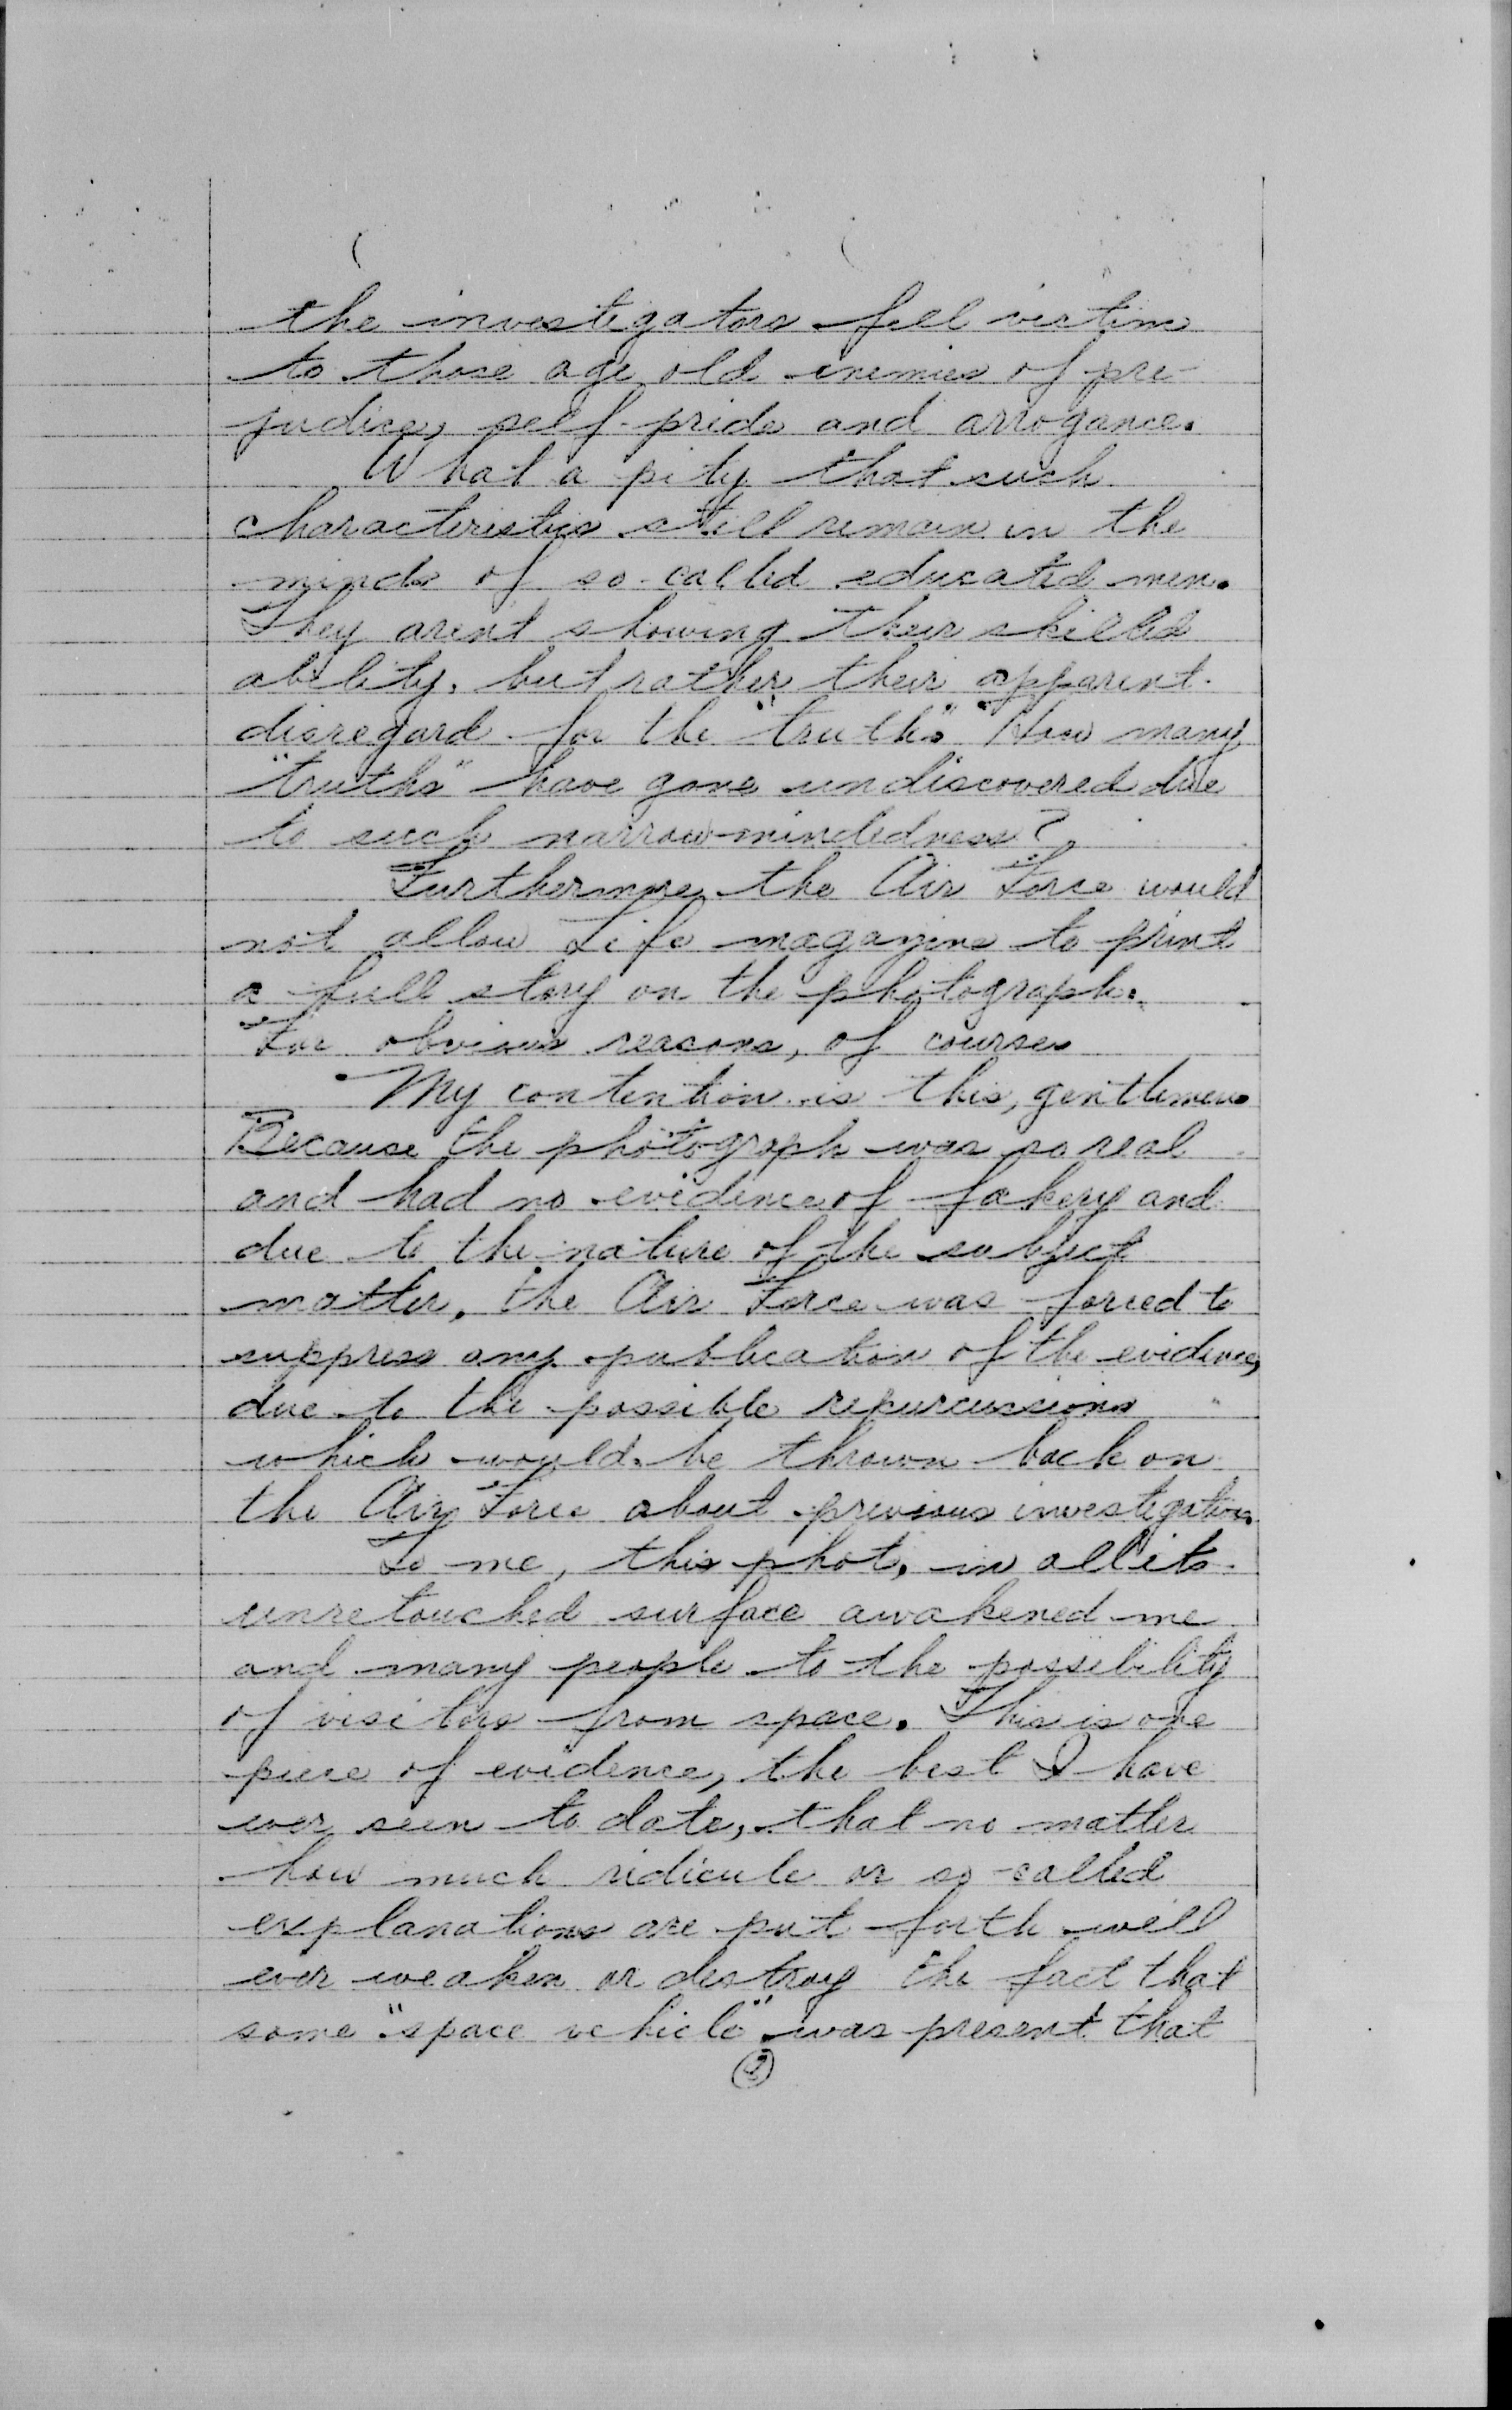 the investigators fell victim
to those age old enemies of pre-
judice, self-pride and arrogance.
What a pity that such
characteristics still remain in the
minds of so-called educated men.
They arent showing their skilled
ability, but rather their apparent
disregard for the "truth." How many
"truths" have gone undiscovered due
to such narrow-mindedness?
Furthermore, the Air Force would
not allow Life magazine to print
a full story on the photograph.
For obvious reasons, of course.
My contention is this, gentlemen.
Because the photograph was so real
and had no evidence of fakery and
due to the nature of the subject
matter, the Air Force was forced to
suppress any publication of the evidence,
due to the possible repurcussions
which would be thrown back on
the Air Force about previous investigations.
To me, this phot, in all its
unretouched surface awakened me
and many people to the possibility
of visitors from space. This is one
piece of evidence, the best I have
ever seen to date, that no matter
how much ridicule or so-called
explanations are put forth will
ever weaken or destroy the fact that
some "space vehicle" was present that